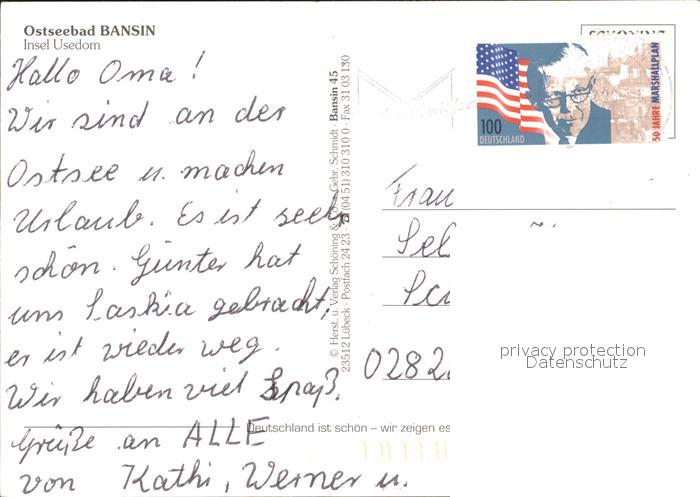 Ostseebad BANSIN
Insel Usedom
Hallo Oma!
Wir sind an der
Ostsee u. machen
Urlaub. Es ist seehr
schön. Günter hat
uns Saskia gebracht,
er ist wieder weg.
Wir haben viel Spaß.
Grüße an ALLE
von Kathi, Werner u.
© Herst. u. Verlag Schöning & Gebr. Schmidt · Bansin 45
23512 Lübeck · Postfach 24 23 · (04 51) 310 310 0 · Fax 31 03 130
Deutschland ist schön – wir zeigen es
100
DEUTSCHLAND
50 JAHRE MARSHALLPLAN
Frau
Sel
0282
privacy protection
Datenschutz